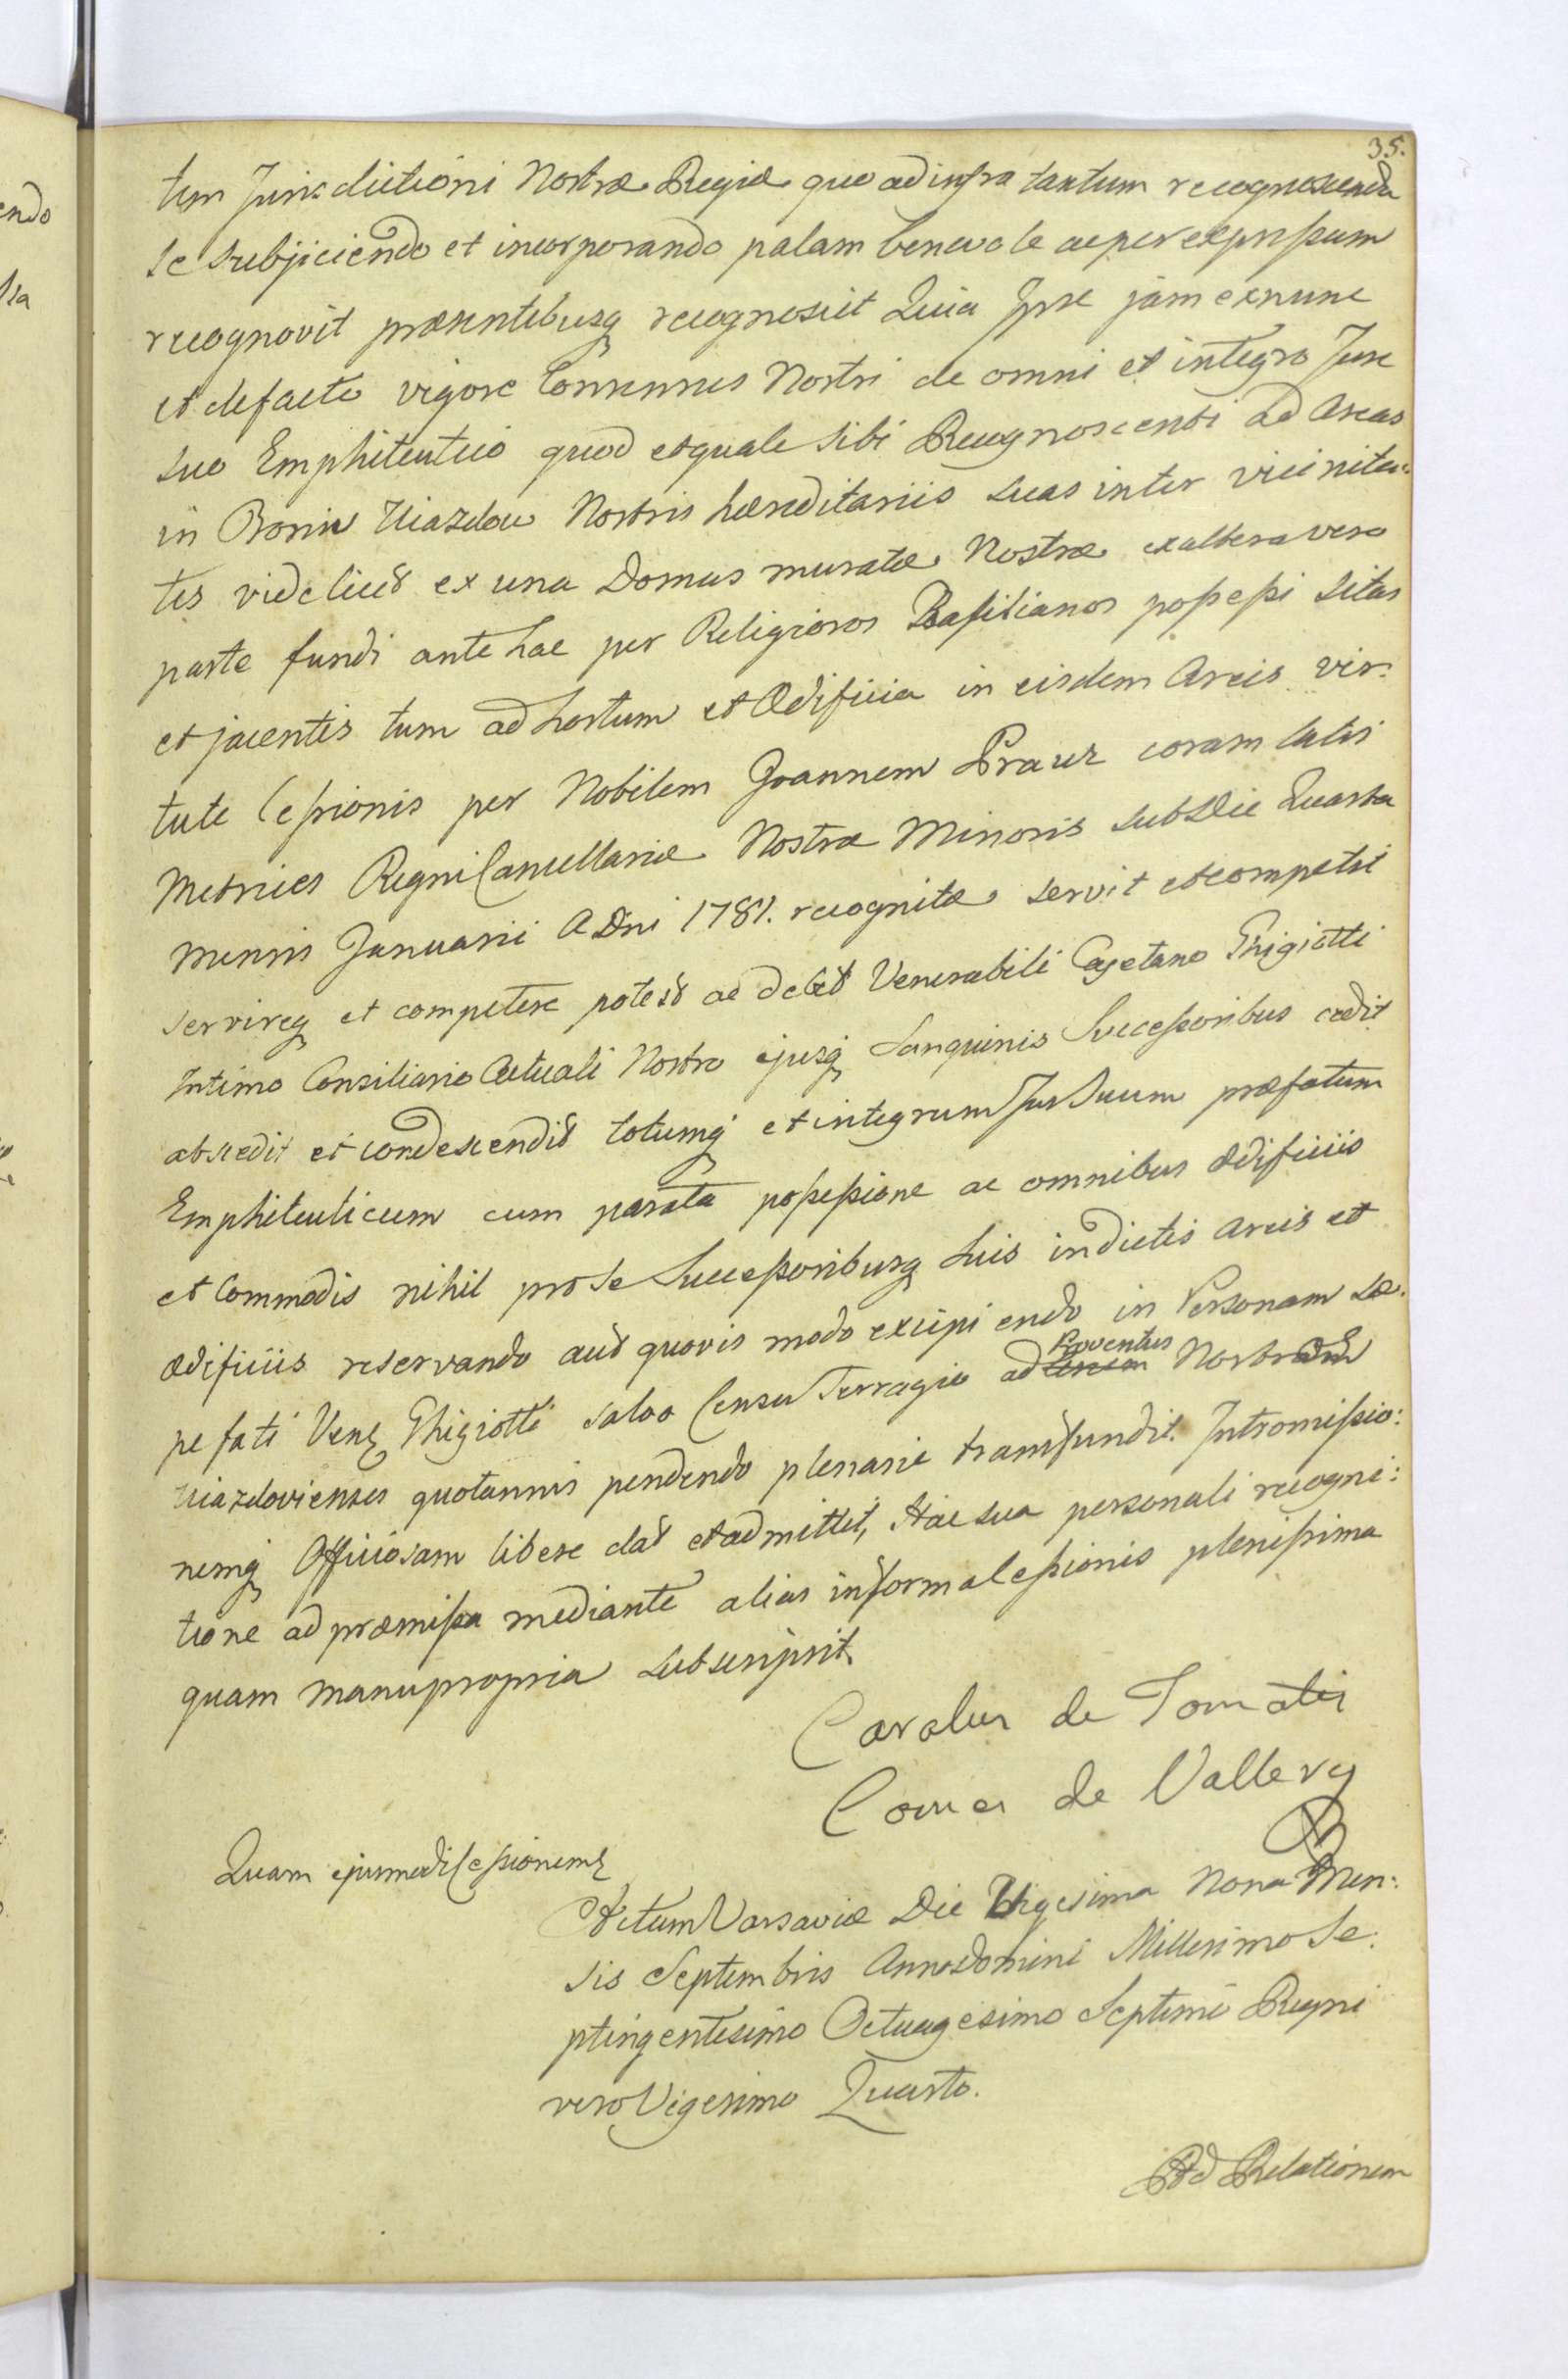 35.
tum Jurisdictioni Nostræ Regiæ quo ad infra tantum recognoscenda
se subjiciendo et incorporando palam benevole ac per expressum
recognovit præsentibusq recognoscit Quia Ipse jam exnunc
et defacto vigore Consensus Nostri de omni et integro Jure
suo Emphiteutico quod et quale sibi Recognoscenti ad Areas
in Bonis Uiazdow Nostris hæreditariis suas inter vicinita:
tes videlicet ex una Domus muratæ Nostræ ex altera vero
parte fundi ante hac per Religiosos Basilianos possessi sitas
et jacentes tum ad hortum et Ædificia in eisdem Areis vir:
tute Cessionis per Nobilem Joannem Prauz coram Actis
Metrices Regni Cancellariæ Nostræ Minoris sub Die Quarta
Mensis Januarii A Dni 1781. recognitæ servit et competit
servireq et competere potest ac debet Venerabili Cajetano Ghigiotti
Intimo Consiliario Actuali Nostro ejusq Sanguinis Successoribus cedit
abscedit et condescendit totumq et integrum Jus Suum præfatum
Emphiteuticum cum parata possessione ac omnibus ædificiis
et Commodis nihil pro se Successoribusq suis in dictis Areis et
ædificiis reservando aut quovis modo excipiendo in Personam sæ:
pe fati Venl Ghigiotti salvo Censu Terragio ad Proventus Nostros
Uiazdovienses quotannis pendendo plenarie transfundit. Intromissio:
nemq Officiosam libere dat et admittit, Hac sua personali recogni:
tione ad præmissa mediante alias in forma Cessionis plenissima
quam manu propria subscripsit.
Carolus de Tomatis
Comes de Vallery
Quam ejusmodi Cessionem
Actum Varsaviæ Die Vigesima Nona Men:
sis Septembris Anno Domini Millesimo Se:
ptingentesimo Octuagesimo Septimo Regni
vero Vigesimo Quarto.
Ad Relationem